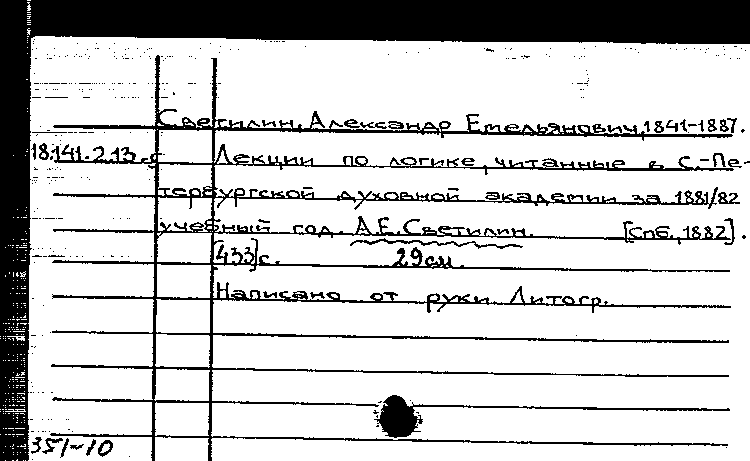 Светилин, Александр Емельянович, 1841-1887.
18.141.2.13.
Лекции по логике, читанные в С.-Пе-
тербургской духовной академии за 1881/82
учебный год. А.Е.Светилин. [Спб., 1882].
[433]с. 29см.
Написано от руки. Литогр.
351-10